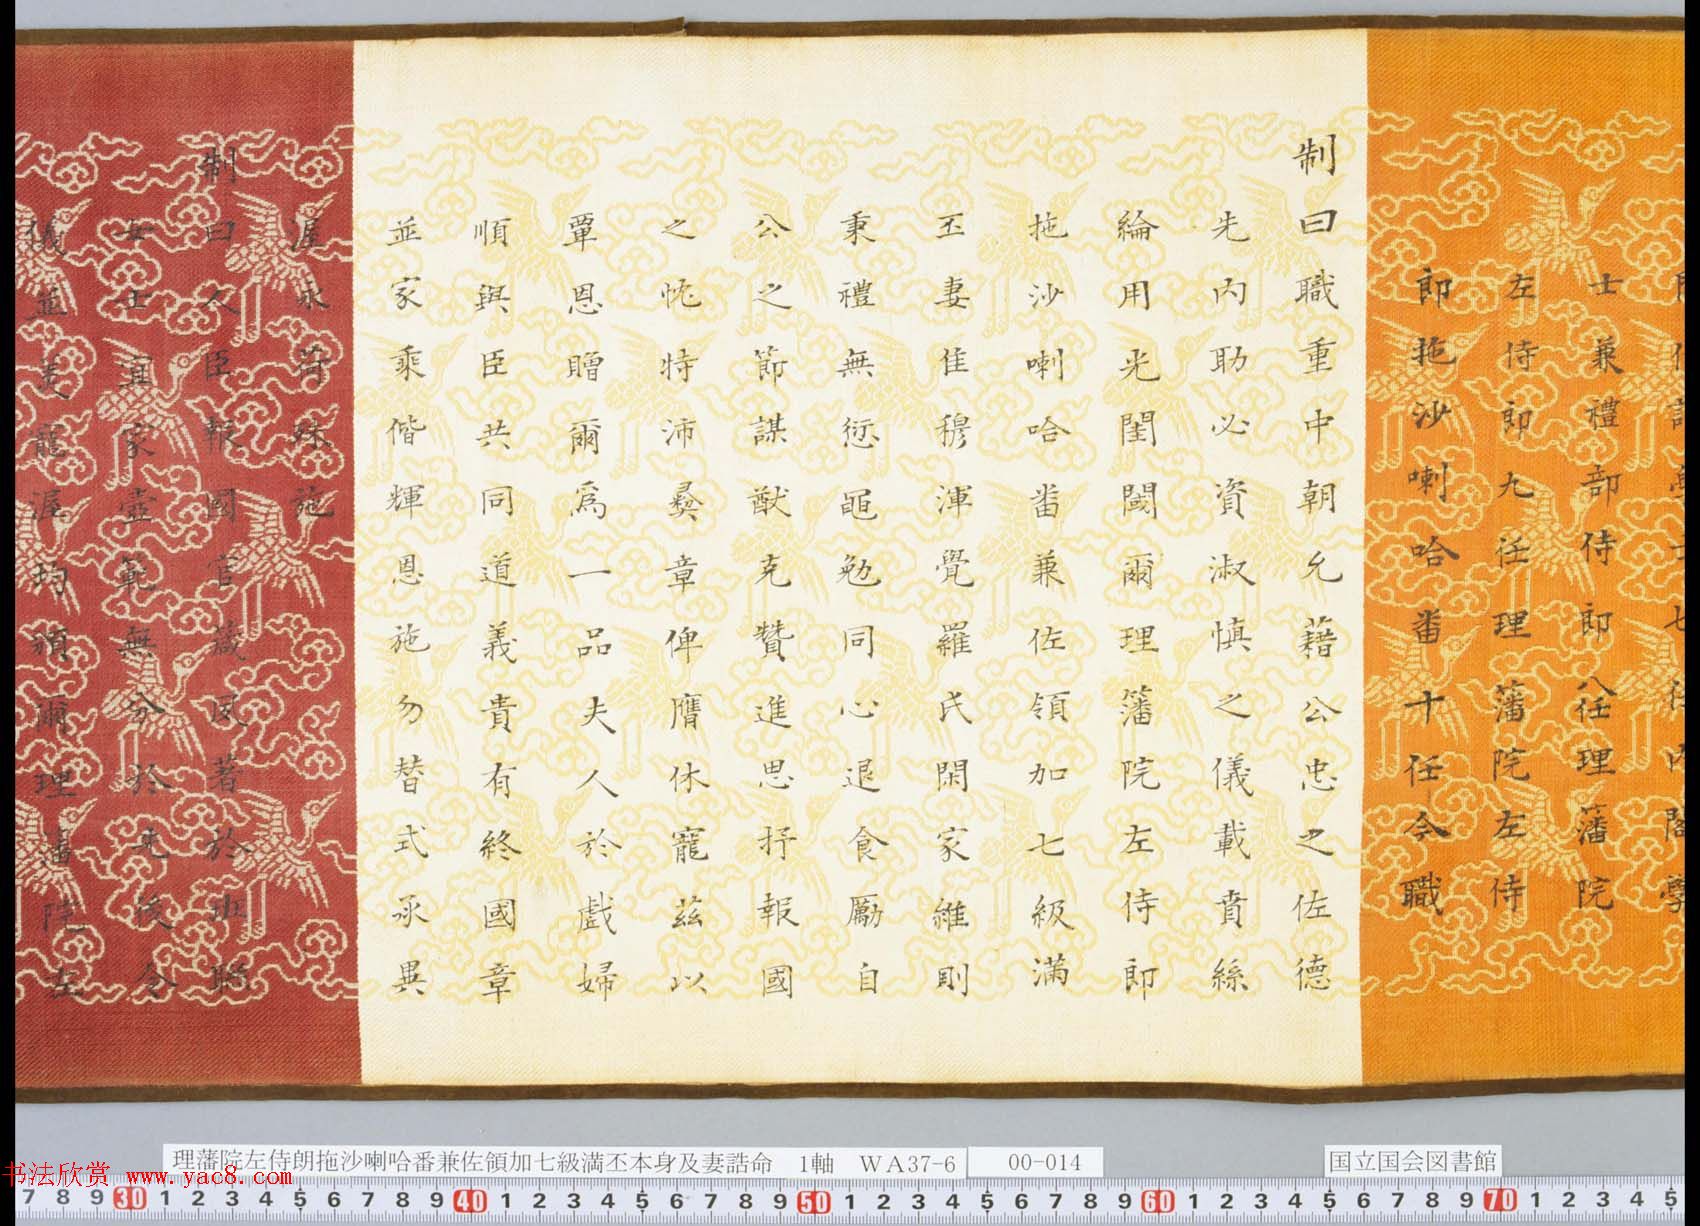 士兼禮部侍郎八任理藩院
左侍郎九任理藩院左侍
郎拖沙喇哈番十任今職
制曰職重中朝允藉公忠之佐德
先內助必資淑慎之儀載賁絲
綸用光閨閫爾理藩院左侍郎
拖沙喇哈番兼佐領加七級滿
丕妻隹穆渾覺羅氏閑家維則
秉禮無愆黽勉同心退食勵自
公之節謀猷克贊進思抒報國
之忱特沛彝章俾膺休寵茲以
覃恩贈爾爲一品夫人於戲婦
順與臣共同道義貴有終國章
並家乘偕輝恩施勿替式承異
渥永荷殊施
制曰人臣報國官箴夙著於班聯
女士宜家壼範無分於先後令
儀並美寵渥均頒爾理藩院左
理藩院左侍朗拖沙喇哈番兼佐領加七級満丕本身及妻誥命 1軸 WA37-6
00-014
国立国会図書館
书法欣赏 www.yac8.com
7 8 9 30 1 2 3 4 5 6 7 8 9 40 1 2 3 4 5 6 7 8 9 50 1 2 3 4 5 6 7 8 9 60 1 2 3 4 5 6 7 8 9 70 1 2 3 4 5